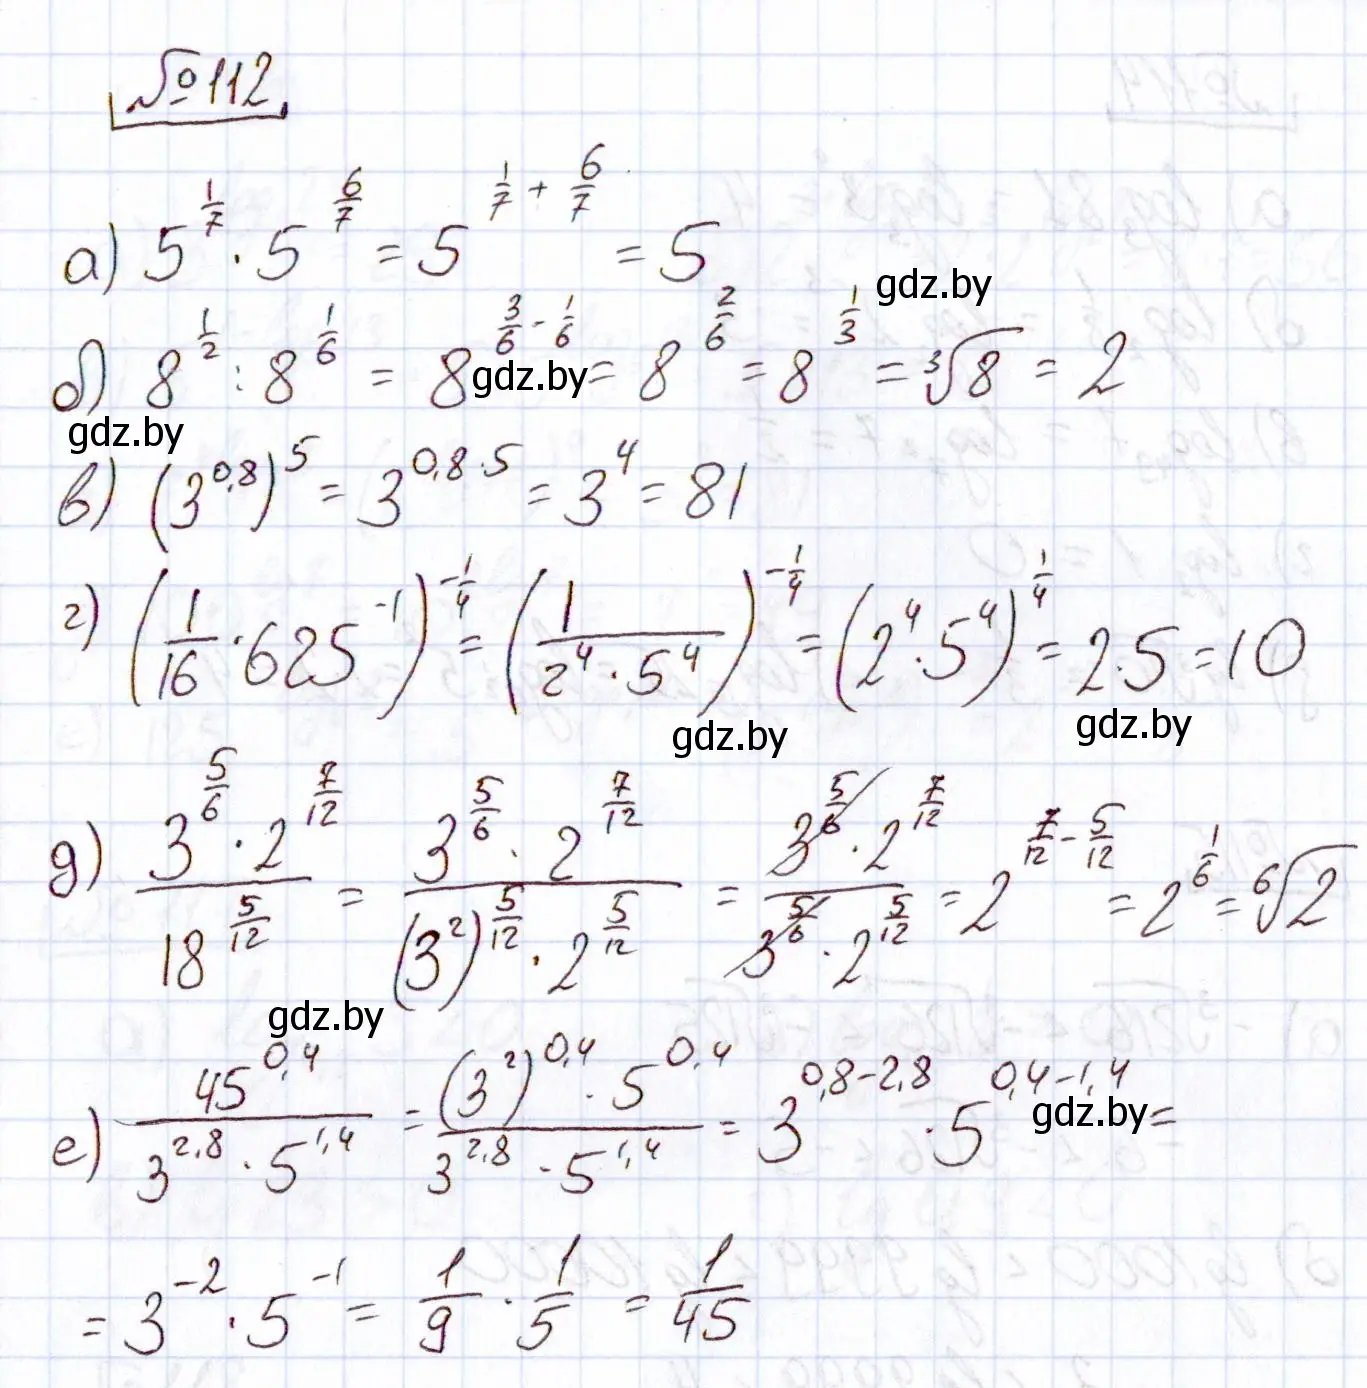 №112
а) 5^{1/7} · 5^{6/7} = 5^{1/7 + 6/7} = 5
gdz.by
б) 8^{1/2} : 8^{1/6} = 8^{3/6 - 1/6} = 8^{2/6} = 8^{1/3} = ∛8 = 2
gdz.by
gdz.by
в) (3^{0,8})^5 = 3^{0,8·5} = 3^4 = 81
г) (1/16 · 625^{-1})^{-1/4} = (1/(2^4 · 5^4))^{-1/4} = (2^4 · 5^4)^{1/4} = 2·5 = 10
gdz.by gdz.by
д) (3^{5/6} · 2^{7/12})/(18^{5/12}) = (3^{5/6} · 2^{7/12})/((3^2)^{5/12} · 2^{5/12}) = (3^{5/6} · 2^{7/12})/(3^{5/6} · 2^{5/12}) = 2^{7/12 - 5/12} = 2^{1/6} = ⁶√2
gdz.by
е) 45^{0,4}/(3^{2,8} · 5^{1,4}) = ((3^2)^{0,4} · 5^{0,4})/(3^{2,8} · 5^{1,4}) = 3^{0,8-2,8} · 5^{0,4-1,4} =
gdz.by
= 3^{-2} · 5^{-1} = 1/9 · 1/5 = 1/45